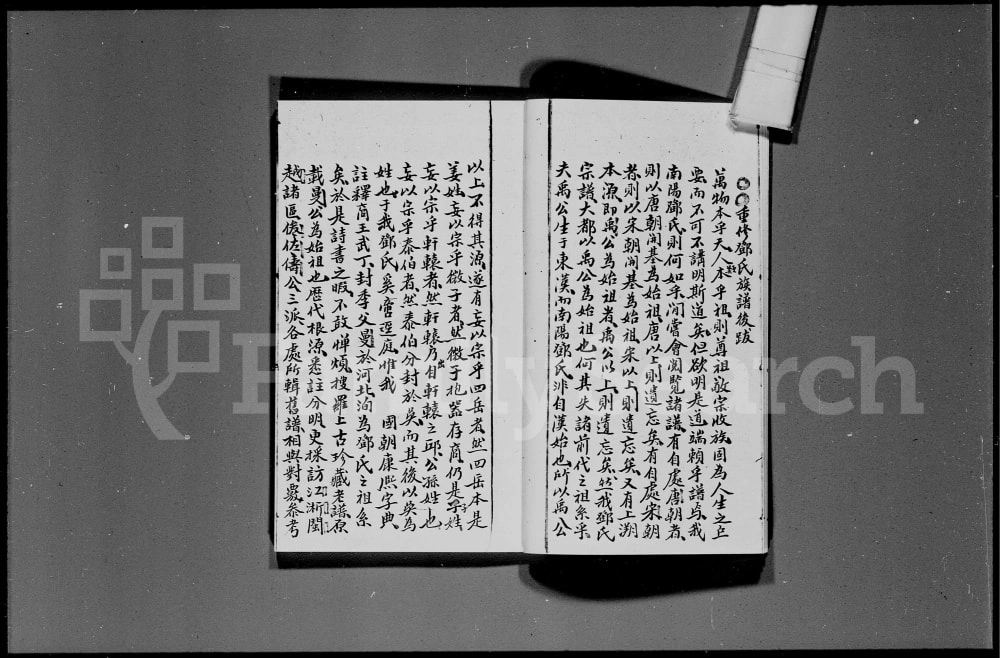 重修鄧氏族譜後跋
萬物本乎天人本乎祖則尊祖敬宗收族固為人生之
要而不可不講明斯道矣但欲明是道端賴乎譜與我
南陽鄧氏則何如乎間嘗會閱覽諸譜有自處唐朝者
則以唐朝開基為始祖唐以上則遺忘矣有自處宋朝
者則以宋朝開基為始祖宋以上則遺忘矣又有上溯
本源即禹公為始祖者禹公以上則遺忘矣然我鄧氏
宗譜大都以禹公為始祖也何其失諸前代之祖系乎
夫禹公生于東漢而南陽鄧氏非自漢始也所以禹公
以上不得其源遂有妄以宗乎四岳者然四岳本是
姜姓妄以宗乎微子者然微子抱器存商仍是子姓
妄以宗乎軒轅者然軒轅乃出自軒轅之邱公孫姓也
妄以宗乎泰伯者然泰伯分封於吳而其後以吳為
姓也于我鄧氏奚啻逕庭惟我 國朝康熙字典
註釋商王武丁封季父曼於河北洵為鄧氏之祖系
矣於是詩書之暇不敢憚煩搜羅上古珍藏老譜原
載曼公為始祖也歷代根源悉註分明更採訪江浙閩
越諸區儀佐儔公三派各處所輯舊譜相與對覈參考
FamilySearch